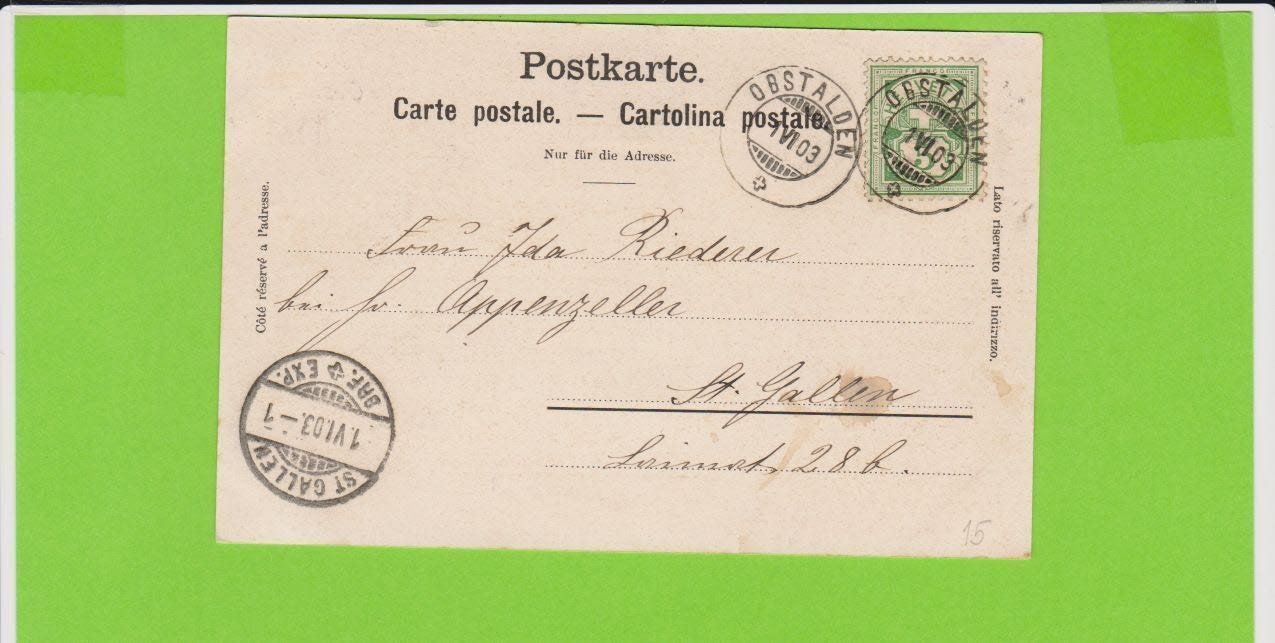 Postkarte.
Carte postale. — Cartolina postale.
Nur für die Adresse.
OBSTALDEN
1 VI. 03
FRANCO
OBSTALDEN
1 VI. 03
5
Côté réservé a l'adresse.
Lato riservato all' indirizzo.
Frau Ida Riederer
bei Hr. Appenzeller
St. Gallen
28 b.
BRF. EXP.
1. VI. 03.
ST GALLEN
15